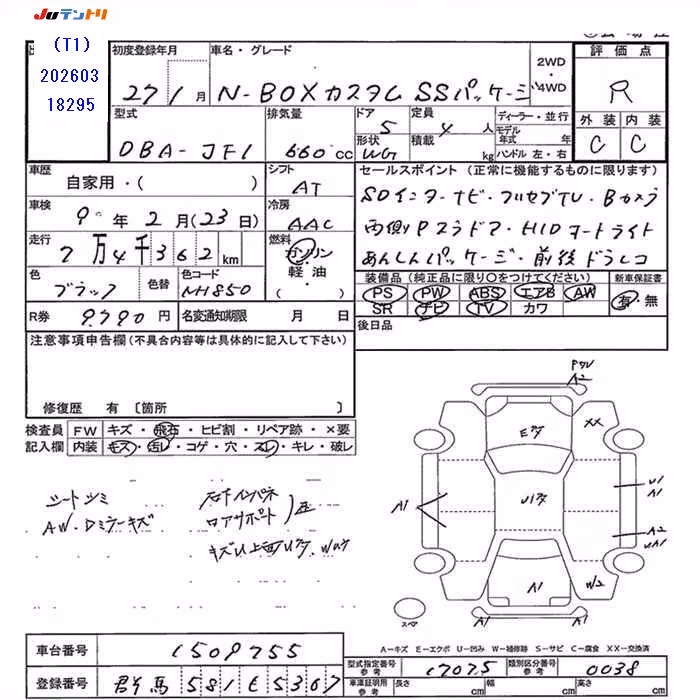 JUテントリ
(T1)
202603
18295
初度登録年月
車名・グレード
2WD
・4WD
評価点
27 1月
N-BOXカスタム SSパッケージ
R
型式
排気量
ドア
定員
ディーラー・並行
外装
内装
DBA-JF1
660cc
5
4人
モデル年式
年
形状
WG
積載
kg
ハンドル 左・右
C
C
車歴
自家用・( )
シフト
AT
セールスポイント (正常に機能するものに限ります)
SDインターナビ・フルセグTV・Bカメラ
車検
9年2月(23日)
冷房
AAC
両側Pスラドア・HIDオートライト
走行
7万4千362km
燃料
ガソリン・軽油・( )
あんしんパッケージ・前後ドラレコ
色
ブラック
色替
色コード
NH850
装備品(純正品に限り○をつけてください)
新車保証書
PS PW ABS エアB AW
有・無
SR ナビ TV カワ
R券
9,790円
名変通知期限
月 日
後日品
注意事項申告欄(不具合内容等は具体的に記入して下さい)
修復歴 有〔箇所 〕
検査員記入欄
FW
キズ・飛石・ヒビ割・リペア跡・×要
内装
キズ・汚レ・コゲ・穴・スレ・キレ・破レ
シートシミ
AW・Dミラーキズ
右F インパネ
ロアサポート
A2
XX
A1
U1
A1
A2
UA1
A1
W2
A1
A1
スペア
A-キズ E-エクボ U-凹み W-補修跡 S-サビ C-腐食 XX-交換済
車台番号
1509755
型式指定番号
参考
17075
類別区分番号
参考
0038
登録番号
群馬 581 と 5367
車庫証明用
参考
長さ
cm
幅
cm
高さ
cm